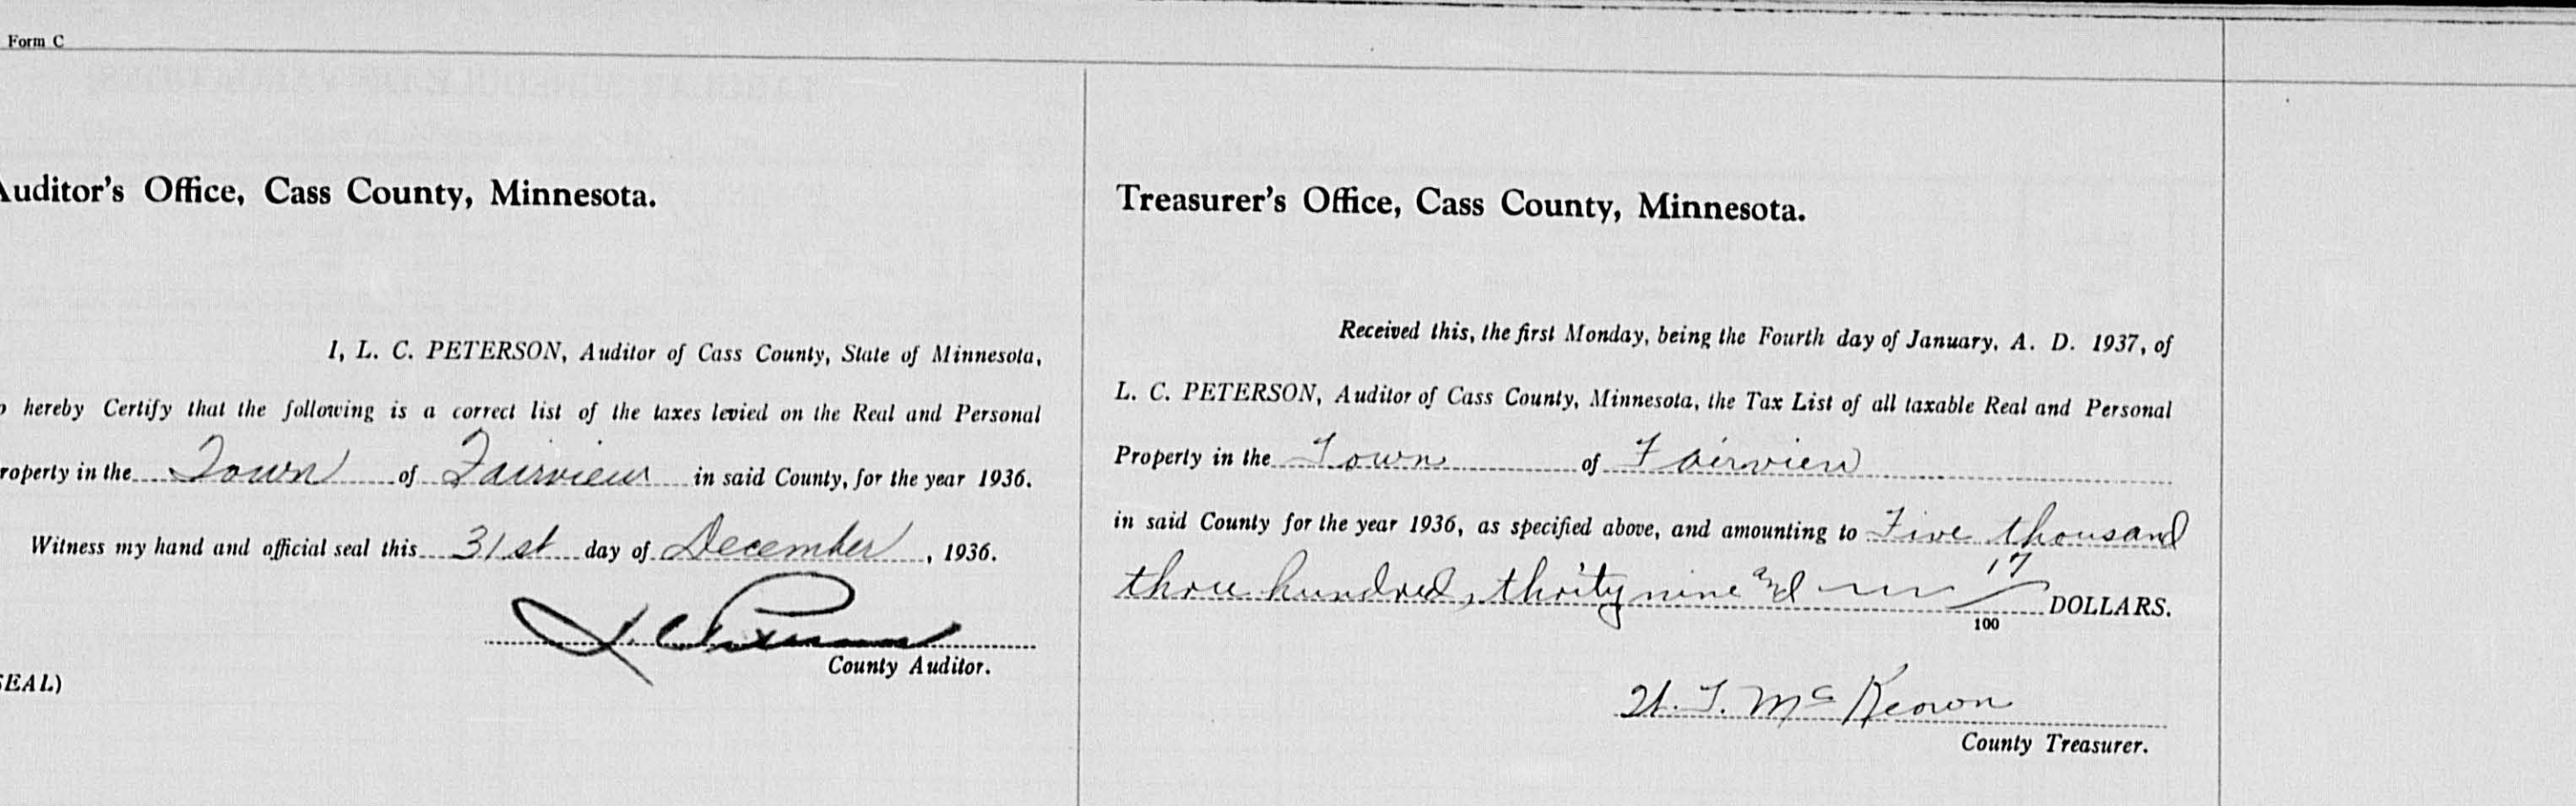 Form C
Auditor's Office, Cass County, Minnesota.
I, L. C. PETERSON, Auditor of Cass County, State of Minnesota,
hereby Certify that the following is a correct list of the taxes levied on the Real and Personal
roperty in the Town of Fairview in said County, for the year 1936.
Witness my hand and official seal this 31st day of December, 1936.
L. C. Peterson
County Auditor.
SEAL)
Treasurer's Office, Cass County, Minnesota.
Received this, the first Monday, being the Fourth day of January, A. D. 1937, of
L. C. PETERSON, Auditor of Cass County, Minnesota, the Tax List of all taxable Real and Personal
Property in the Town of Fairview
in said County for the year 1936, as specified above, and amounting to Five thousand
three hundred, thirty nine and 17/100 DOLLARS.
T. McKeown
County Treasurer.